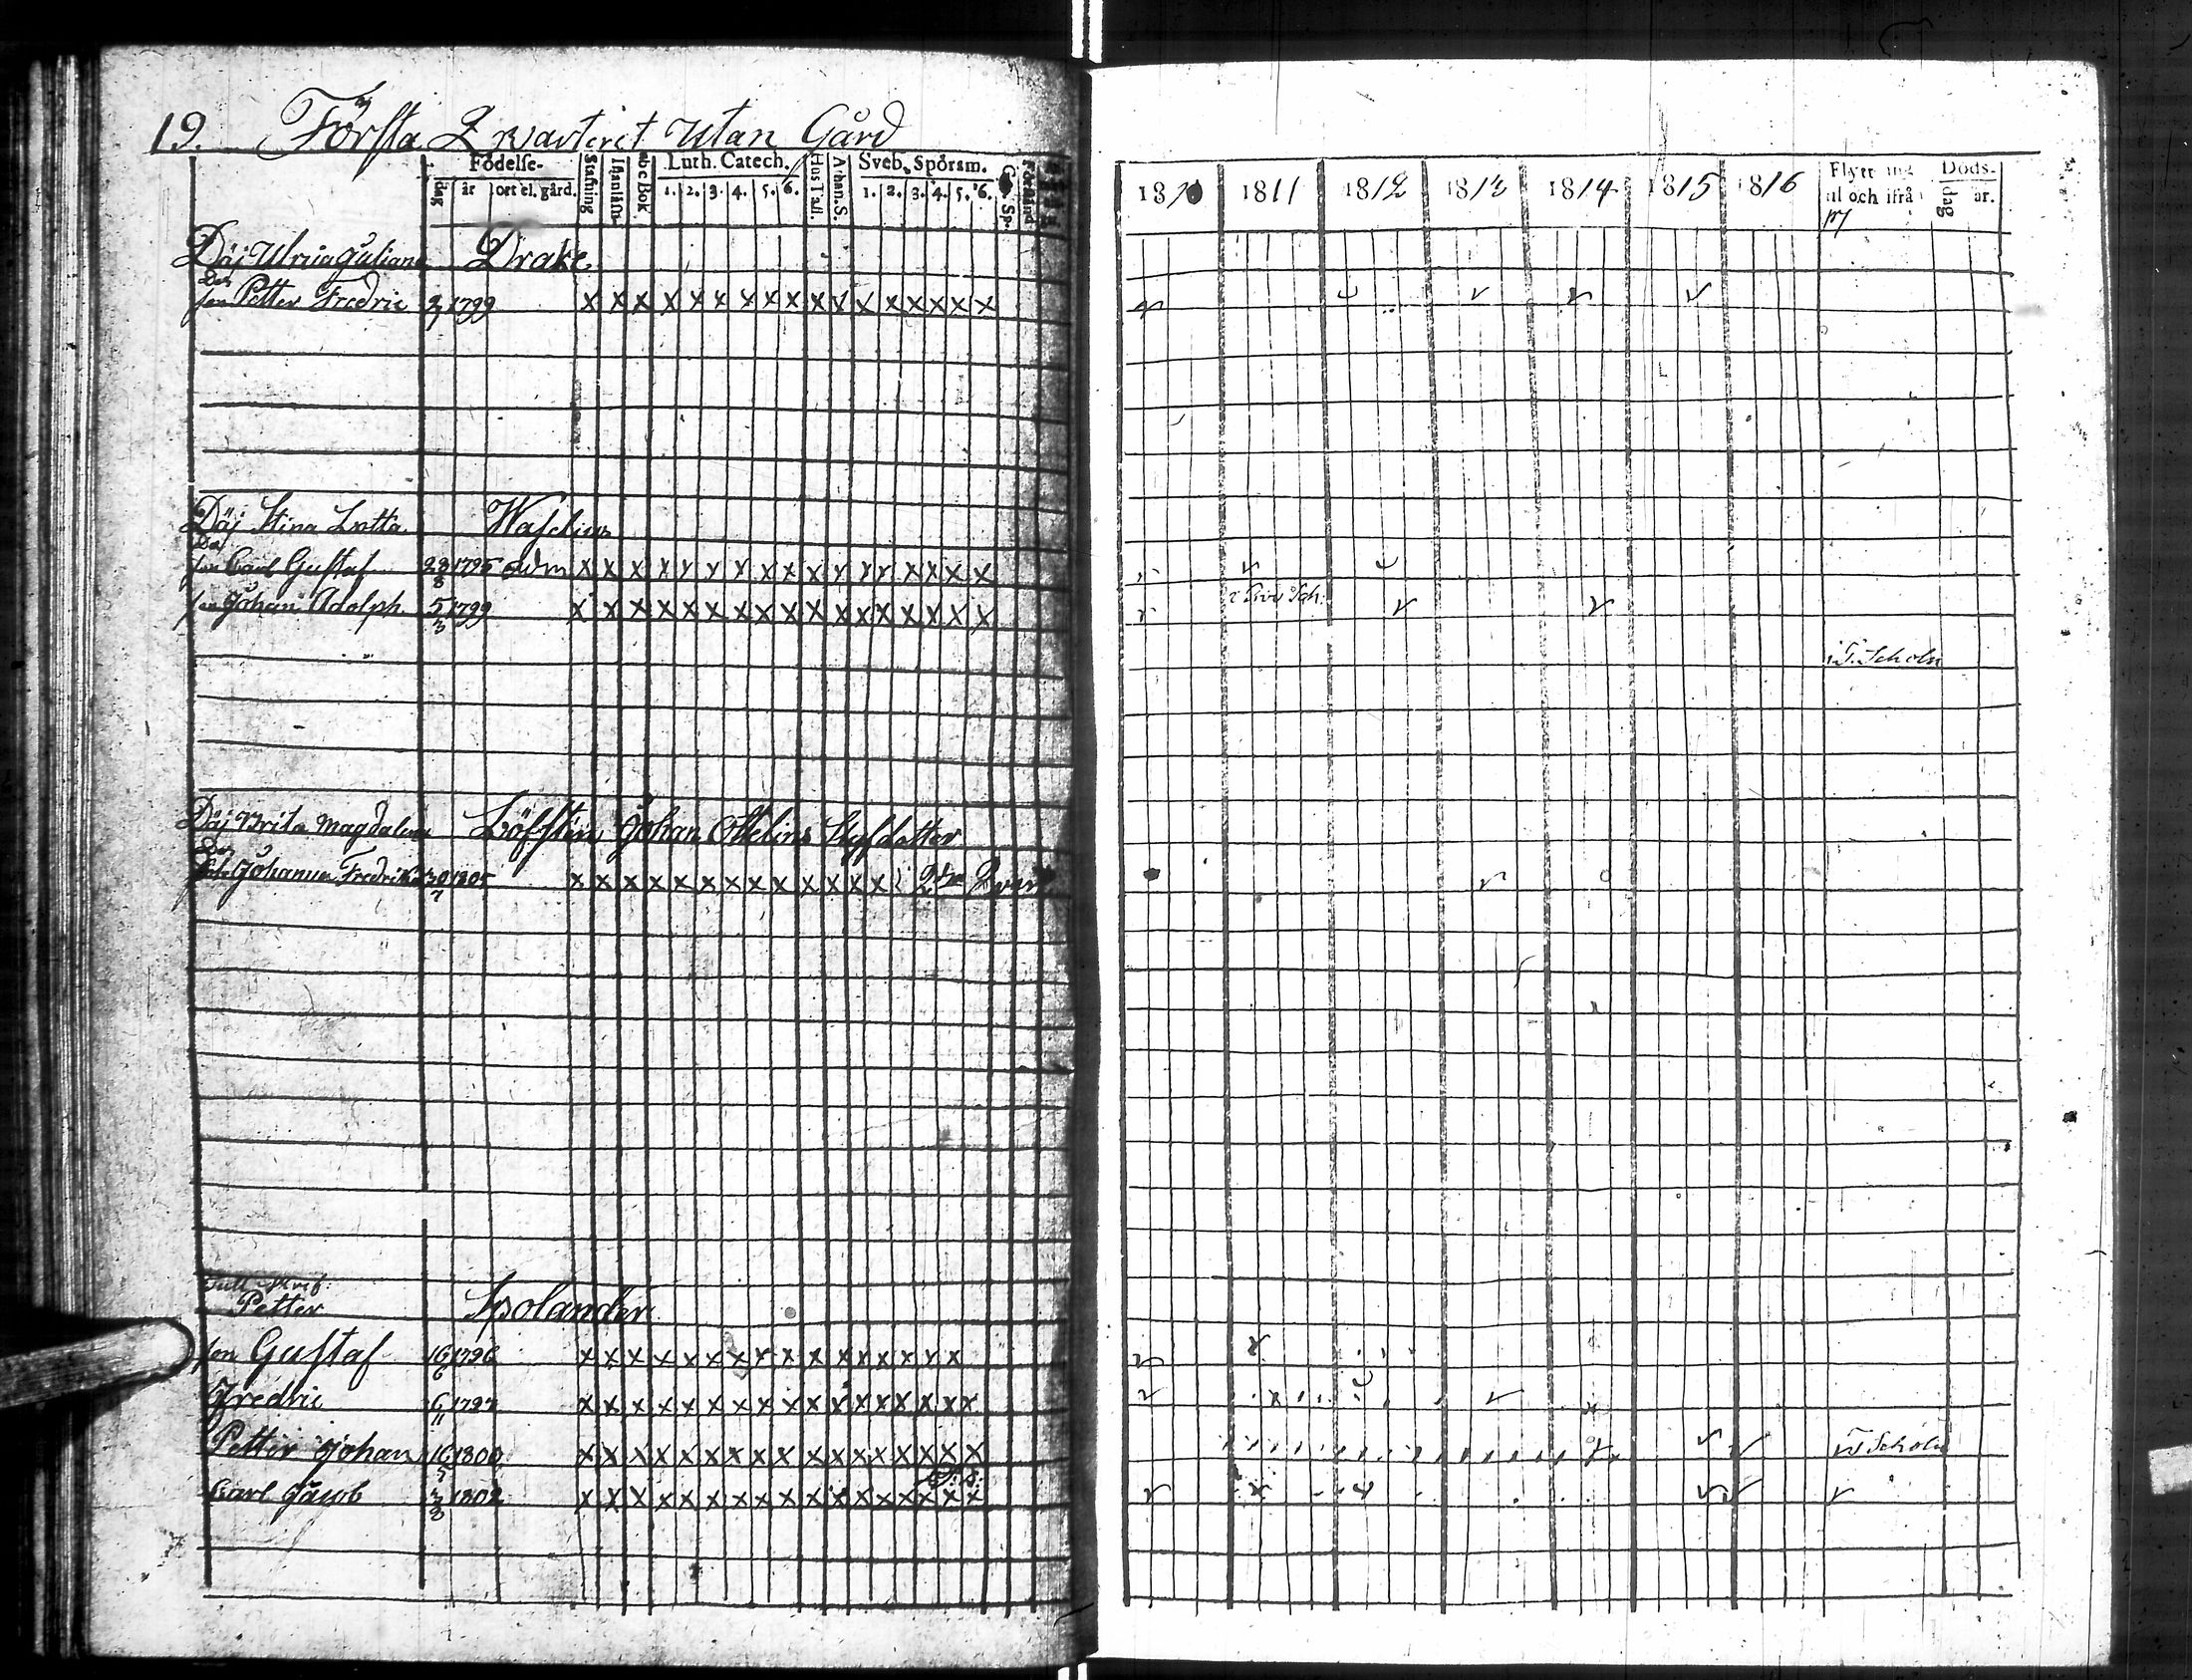 19. Första Qvarteret utan Gård
Födelse- Luth. Catech. Hus Tafl. Athan. S. Sveb. Spörsm.
dag år ort el. gård. Stafning Innanläsn. abc Bok 1. 2. 3. 4. 5. 6. 1. 2. 3. 4. 5. 6.
Däj Ulrica Juliana Drake
Des
son Petter Fredric 3/7 1799 x x x x x x x x x x x x x x x x x
Däj Stina Lotta
Des
son Carl Gustaf 28/8 1795 x x x x x x x x x x x x x x x x x
son Johan Adolph 5/3 1799 x x x x x x x x x x x x x x x x x
Däj Brita Magdalena Löfsten Johan Styfdotter
Des
Johanna Fredrika 30/7 1805 x x x x x x x x x x x x x 2dra Qvart
Petter Spolander
son Gustaf 16/6 1796 x x x x x x x x x x x x x x x x
Fredric 6/11 1797 x x x x x x x x x x x x x x x x x
Petter Johan 16/5 1800 x x x x x x x x x x x x x x x x x
Carl Jacob 3/8 1802 x x x x x x x x x x x x x x x x x
1810 1811 1812 1813 1814 1815 1816 Flyttning Döds-
til och ifrå dag år.
T. Schola
Schola